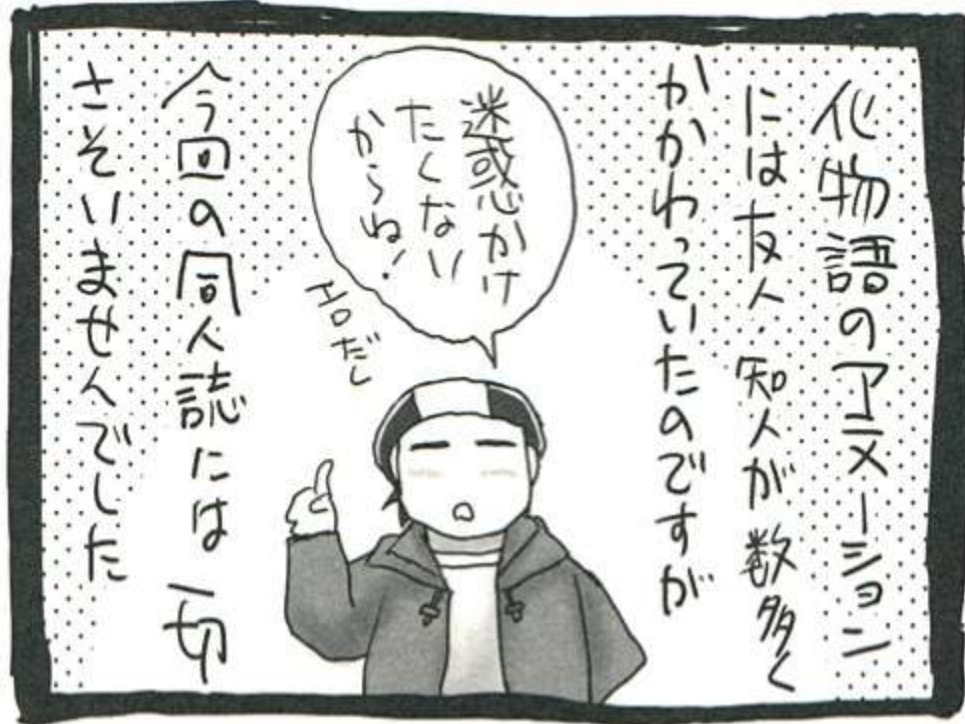 化物語のアニメーション
には友人・知人が数多く
かかわっていたのですが
迷惑かけ
たくない
から〜ね!
エロだし
今回の同人誌には一切
さそいませんでした